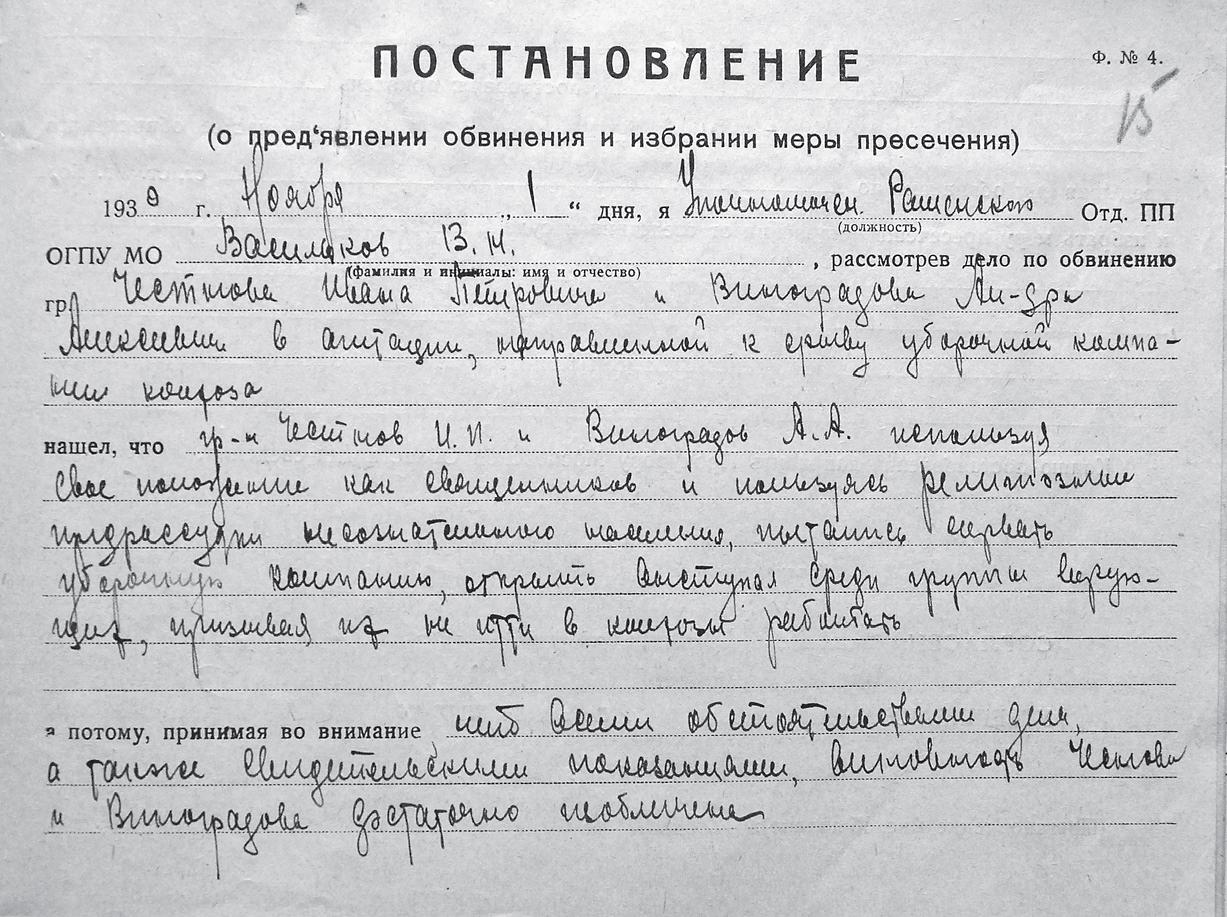 ПОСТАНОВЛЕНИЕ
Ф. № 4.
15
(о пред‘явлении обвинения и избрании меры пресечения)
1939 г. Ноября „1“ дня, я Уполномочен. Отд. ПП
(должность)
ОГПУ МО В. Н. , рассмотрев дело по обвинению
(фамилия и инициалы: имя и отчество)
гр. Честнова Ивана Петровича и Виноградова
Алексеевича в агитации, направленной к срыву уборочной кампа-
нии колхоза
нашел, что гр-н Честнов И. П. и Виноградов А. А. используя
свое положение как священников и пользуясь религиозными
предрассудки несознательного населения, пытались сорвать
уборочную кампанию, открыто выступал среди группы верую-
щих, призывая их не итти в колхозы работать
а потому, принимая во внимание всеми обстоятельствами дела,
а также свидетельскими показаниями, виновность Честнова
и Виноградова достаточно изобличена